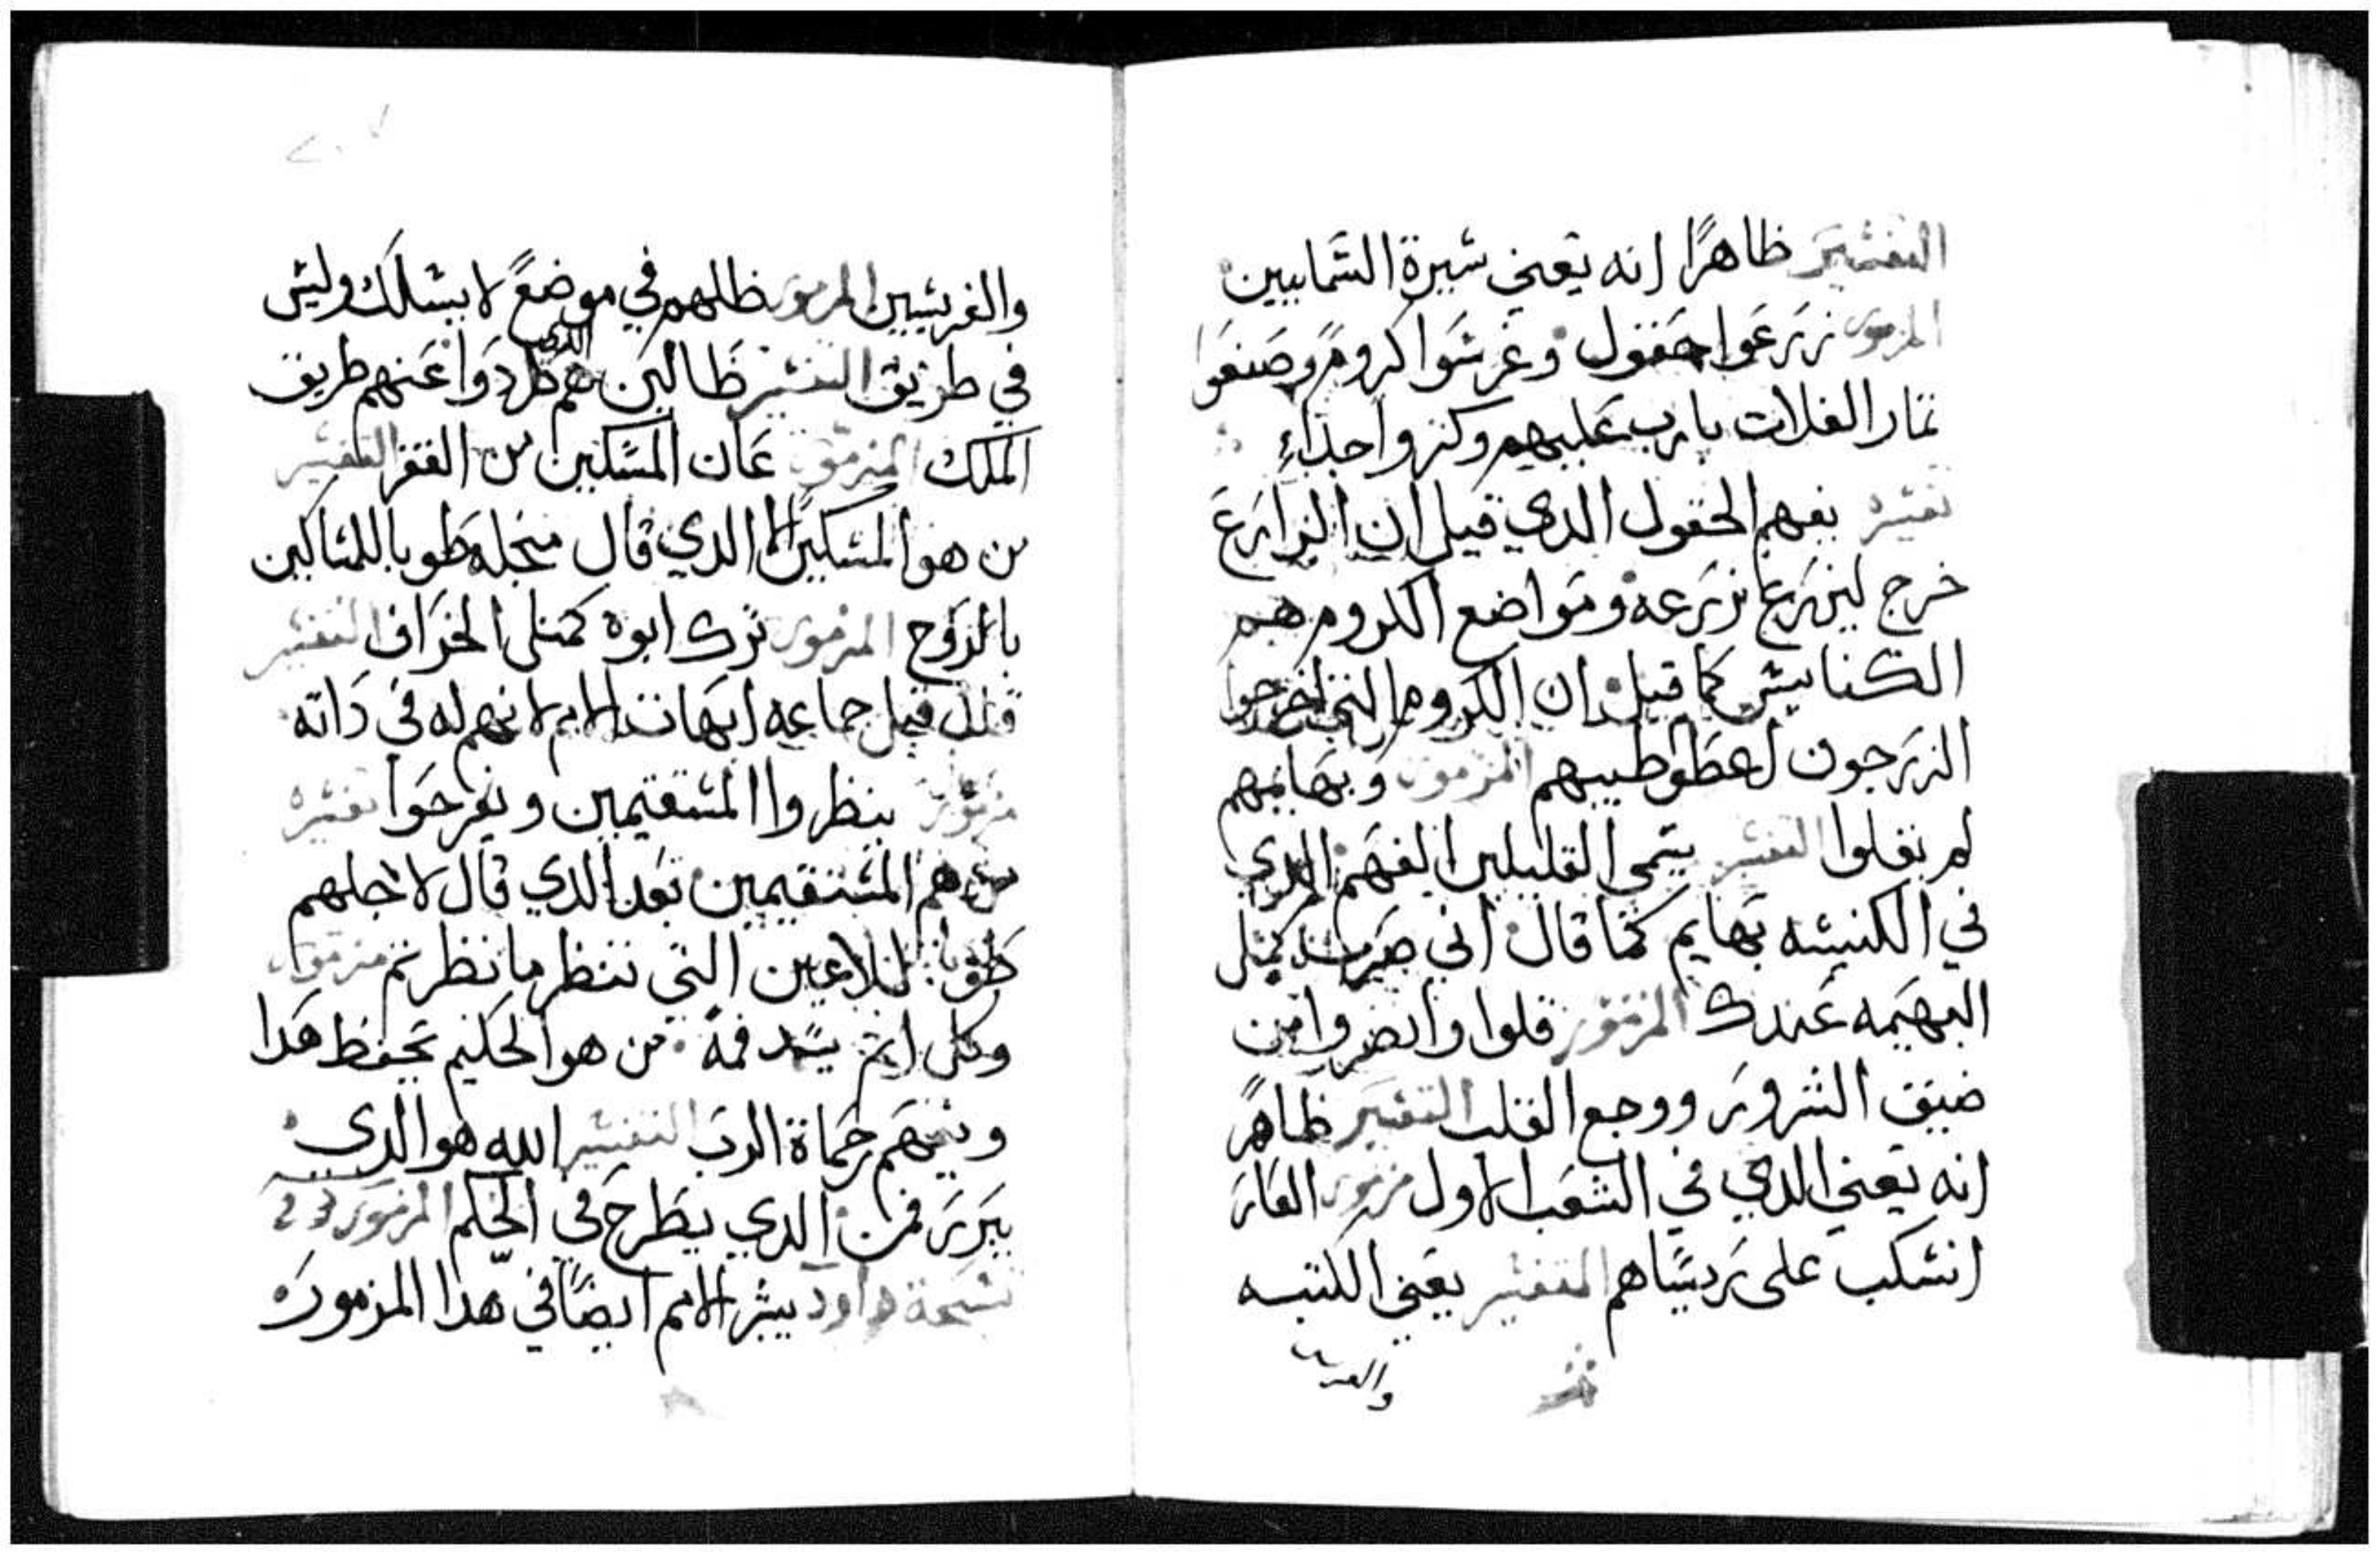 التفشير ظاهرًا انه يعني شيرة الشمايين
المزمور زرعوا حقول وغرشوا كروم وصنعوا
ثمار الغلات بارب عليهم وكثروا جداء
تفشير يفهم الحقول الدي قيل ان الزارع
خرج ليزرع زرعه ومواضع الكروم هم
الكنايش كما قيل ان الكروم التي اخرجوا
الزرجون اعطوا طيبهم المزمور وبهايمهم
لم يقلوا التفشير يشمي القليلين الفهم الدي
في الكنيشه بهايم كما قال اني صرت كمثل
البهيمه عندك المزمور قلوا وانضروا من
ضيق الشرور ووجع القلب التفشير ظاهرً
انه يعني الدي في الشعب الاول مزمور العار
انشكب على ريشاهم التفشير يعني الكتبه
والفر
والفريشيين المزمور ظللهم في موضعً لا يشلك وليش
في طريق التفشير ظالين هم الدي طردوا عنهم طريق
الملك المزمور عان المشكين من الفقر التفشير
من هو المشكين الا الدي قال منجله طوبا للمشاكين
بالروح المزمور ترك ابوة كمثل الخراف التفشير
قبل جماعه ابهات الامم لانهم له في داته
مزمور ينظروا المشتقيمين ويفرحوا تفشيره
من هم المشتقيمين بعد الدي قال لاجلهم
طوبا للاعين التي تنظر ما نظرتم مزمور
وكل اثم يشد فمه من هو الحكيم يحفظ هدا
ويفهم رحماة الرب التفشير الله هو الدي
يبرر فمن الدي يطرح في الحكم المزمور
تشبحة داود يبشر الامم ايضًا في هدا المزمور